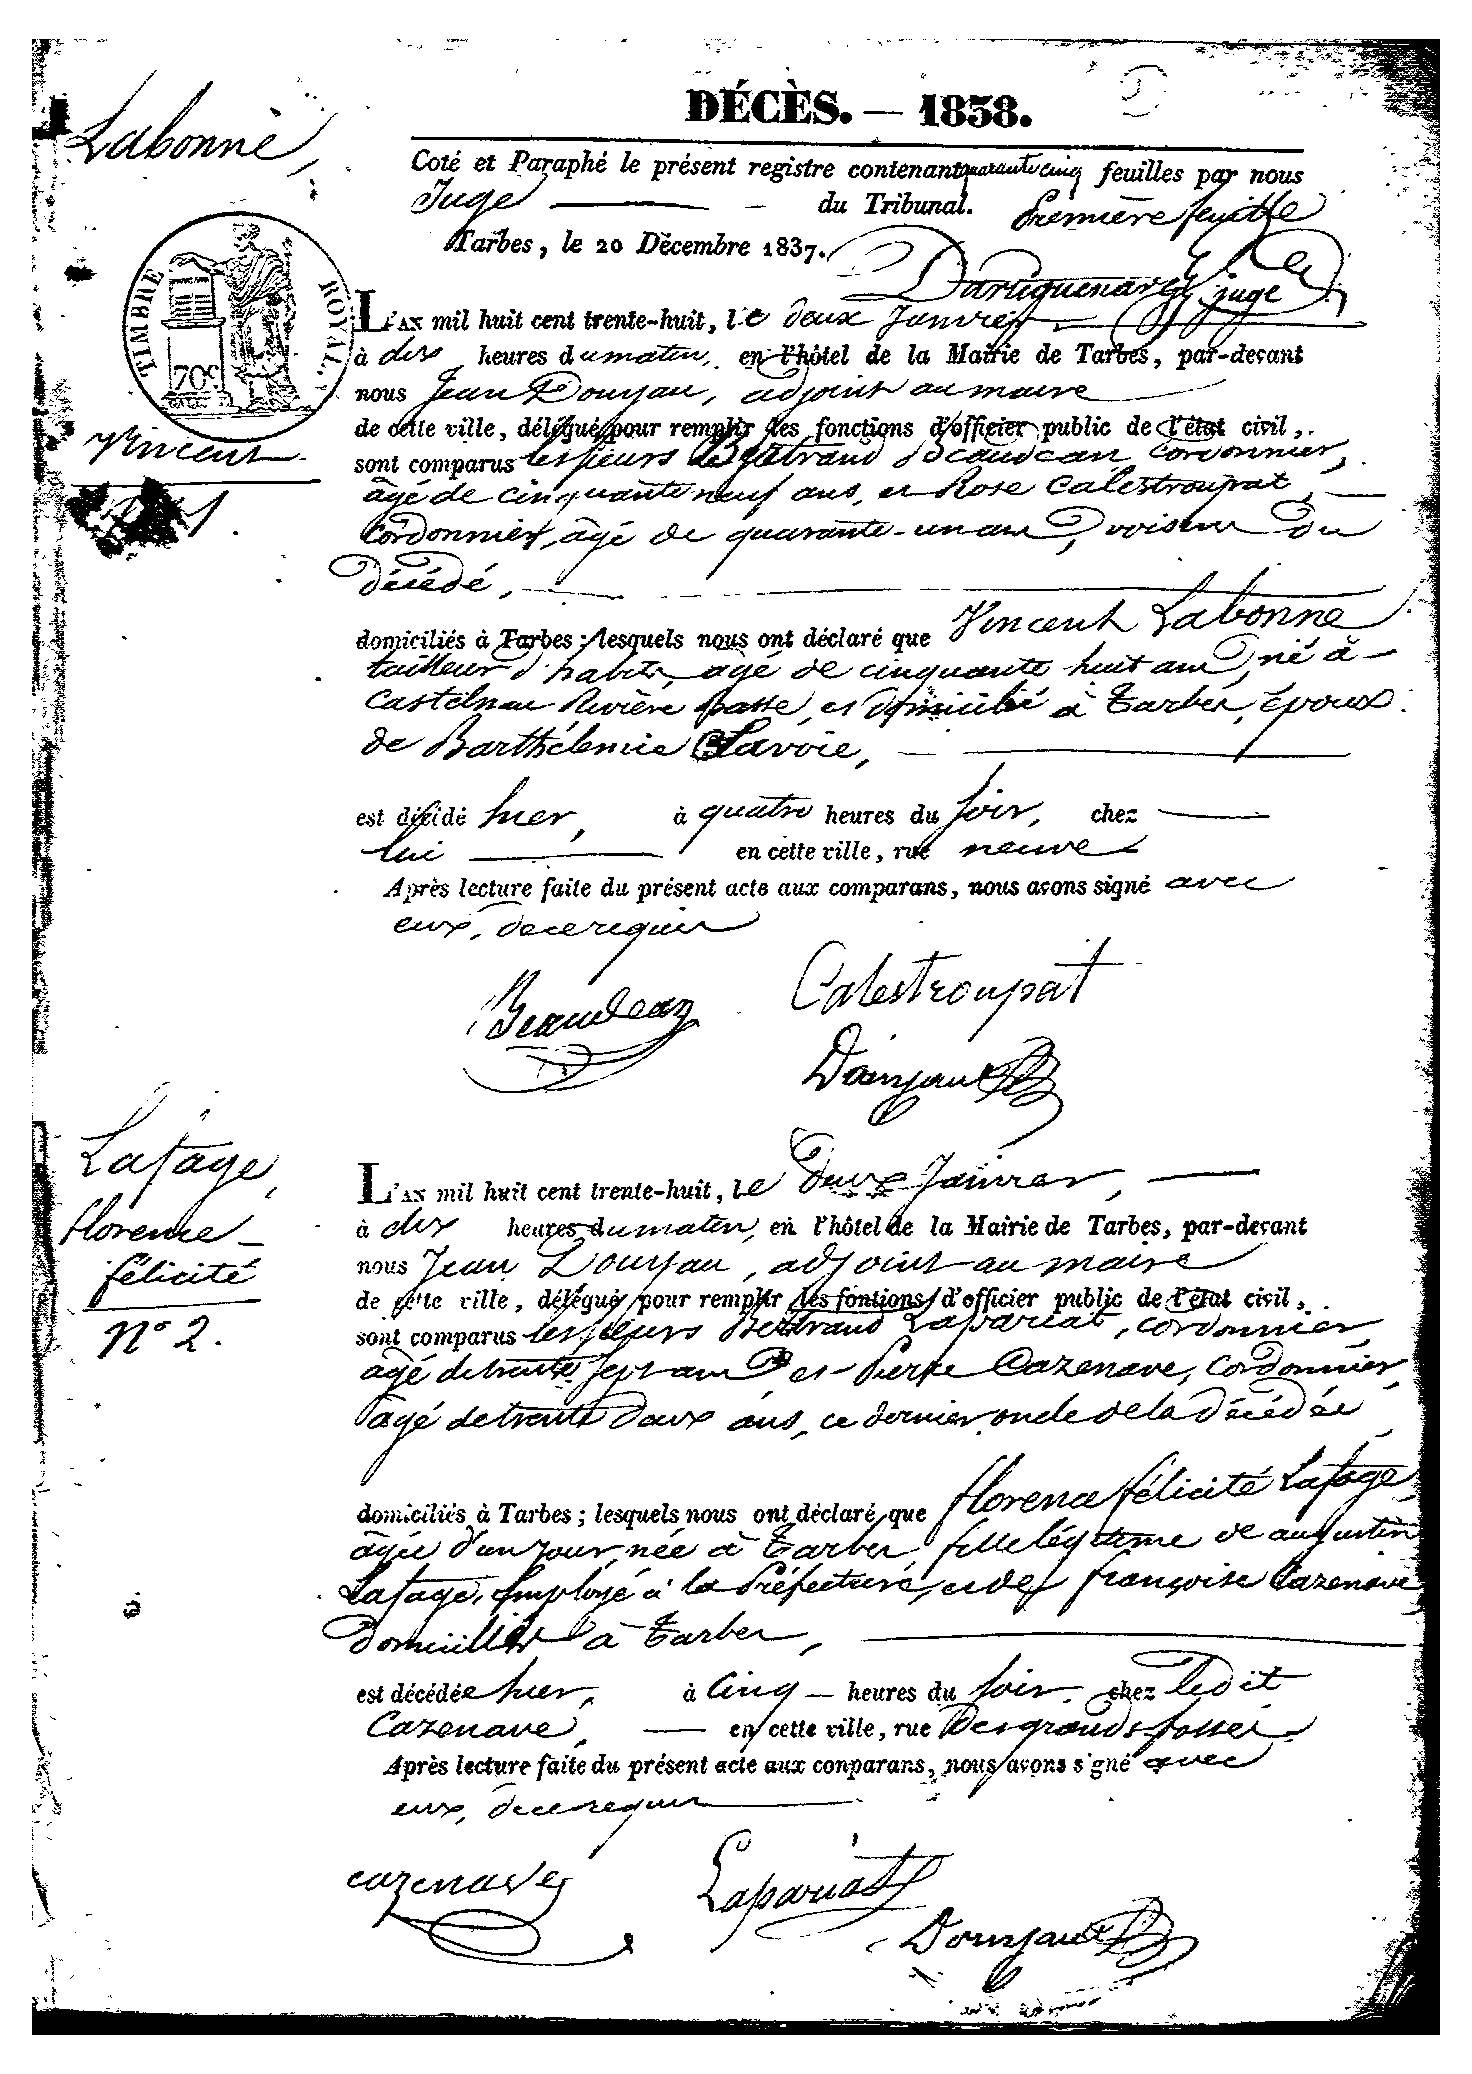 DÉCÈS. — 1838.
Labonne,
Coté et Paraphé le présent registre contenant quarante cinq feuilles par nous
Juge — du Tribunal. Première feuille
Tarbes, le 20 Décembre 1837.
juge
TIMBRE ROYAL.
70c
Vincent
L'AN mil huit cent trente-huit, le deux Janvier
à dix heures du matin, en l'hôtel de la Mairie de Tarbes, par-devant
nous Jean Dourjau, adjoint au maire
de cette ville, délégué pour remplir les fonctions d'officier public de l'état civil,
sont comparus les sieurs Bertrand Beaudean cordonnier,
âgé de cinquante neuf ans, et Rose Calestroupat,
Cordonnier, âgé de quarante-un ans, voisins du
décédé,
domiciliés à Tarbes; lesquels nous ont déclaré que Vincent Labonne
tailleur d'habits, agé de cinquante huit ans, né à
Castelnau Rivière basse, et domicilié à Tarbes, époux
de Barthélemie Lavoie,
est décédé hier, à quatre heures du soir, chez
lui — en cette ville, rue neuve
Après lecture faite du présent acte aux comparans, nous avons signé avec
eux, de ce requis
Beaudean Calestroupat
Dourjau
Lafage,
florence
félicité
N° 2.
L'AN mil huit cent trente-huit, le deux Janvier,
à dix heures du matin, en l'hôtel de la Mairie de Tarbes, par-devant
nous Jean Dourjau, adjoint au maire
de cette ville, délégué pour remplir les fontions d'officier public de l'état civil,
sont comparus les sieurs Bertrand Lapariat, cordonnier,
âgé de trente sept ans et Pierre Cazenave, cordonnier,
âgé de trente deux ans, ce dernier oncle de la décédée
domiciliés à Tarbes; lesquels nous ont déclaré que florence félicité Lafage,
âgée d'un jour, née à Tarbes, fille légitime de augustin
Lafage, Employé à la Préfecture, et de françoise Cazenave,
domiciliés à Tarbes,
est décédée hier, à cinq — heures du soir, chez ledit
Cazenave, — en cette ville, rue Des grands fossés
Après lecture faite du présent acte aux conparans, nous avons signé avec
eux, de ce requis
cazenave Lapariat
Dourjau